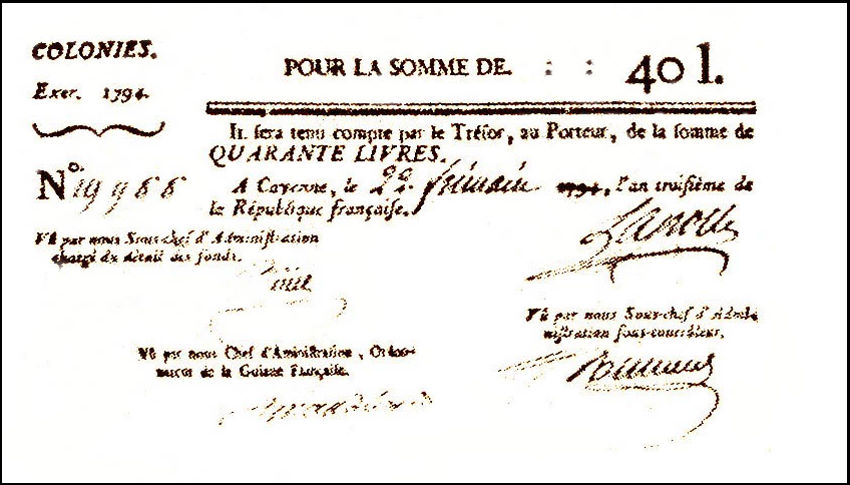 COLONIES.
Exer. 1794.
POUR LA SOMME DE. : : 40 l.
Il sera tenu compte par le Trésor, au Porteur, de la somme de
QUARANTE LIVRES.
N° 19966
A Cayenne, le 22 frimaire 1794, l'an troisième de
la République française.
Vû par nous Sous-chef d'Administration
chargé du détail des fonds.
Vû par nous Sous-chef d'Admi-
nistration sous-contrôleur.
Vû par nous Chef d'Aministration, Ordon-
nateur de la Guiane Française.